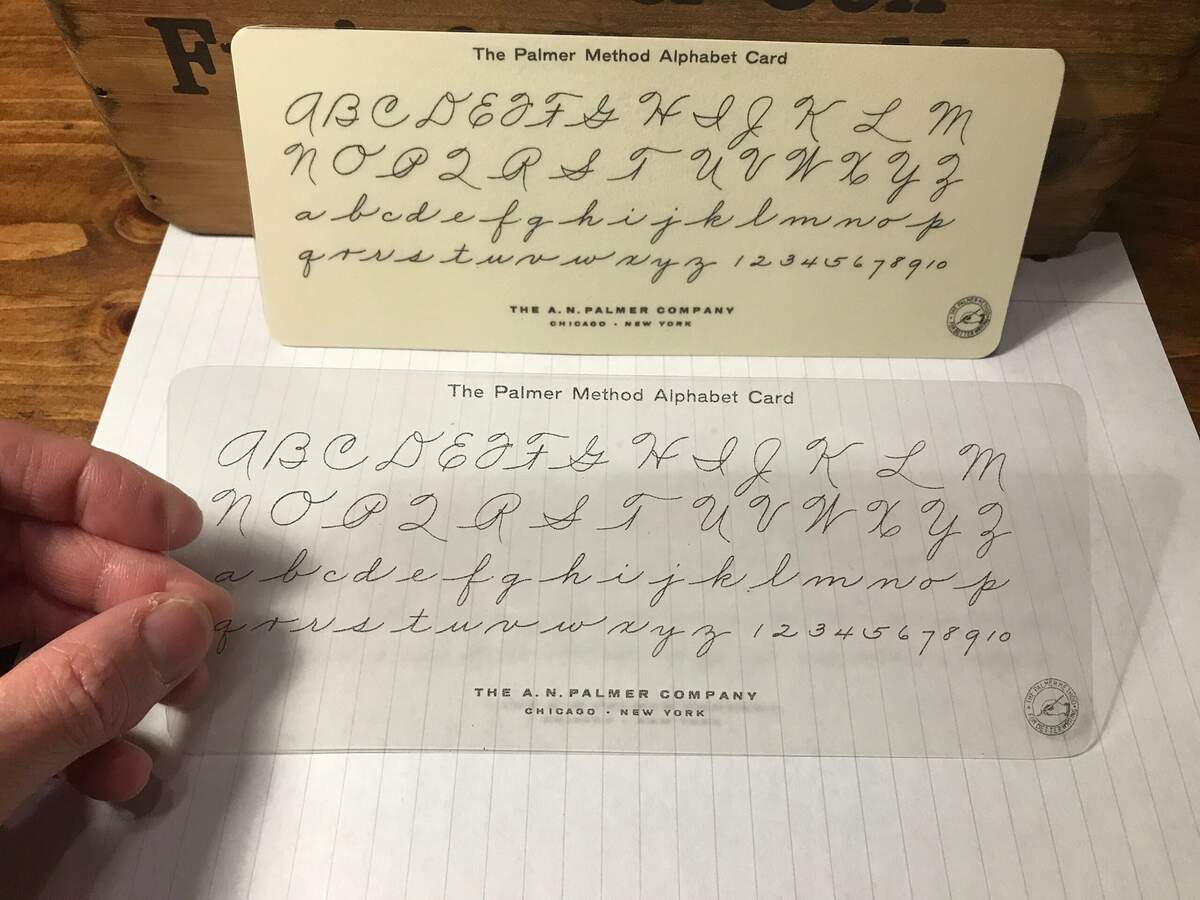 The Palmer Method Alphabet Card
A B C D E F F G H I J K L M
N O P Q R S T U V W X Y Z
a b c d e f g h i j k l m n o p
q r r s t u v w x y z 1 2 3 4 5 6 7 8 9 10
THE A. N. PALMER COMPANY
CHICAGO - NEW YORK
THE PALMER METHOD
FOR BETTER WRITING
The Palmer Method Alphabet Card
A B C D E F F G H I J K L M
N O P Q R S T U V W X Y Z
a b c d e f g h i j k l m n o p
q r r s t u v w x y z 1 2 3 4 5 6 7 8 9 10
THE A. N. PALMER COMPANY
CHICAGO - NEW YORK
THE PALMER METHOD
FOR BETTER WRITING